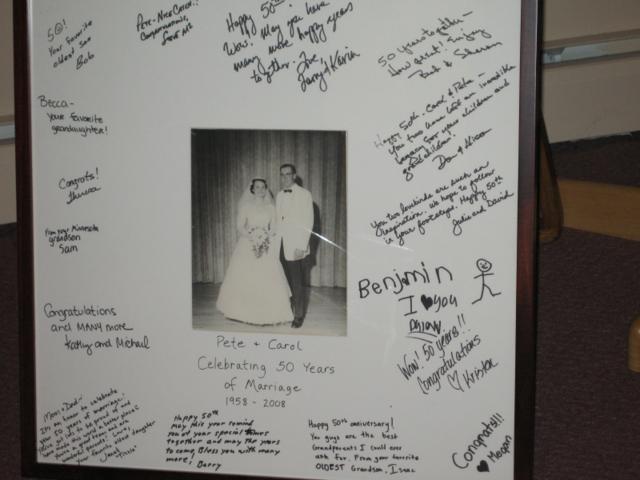 50!
Your favorite
oldest son
Bob
Pete - Nice Catch!
Congratulations,
Happy 50th
Wow! May you have
many more happy years
together. Love,
Larry & Karia
50 years together -
How great! Enjoy
& Sharon
Becca -
your favorite
grandaughter!
Happy 50th. Carol & Pete -
You two have left an incredible
legacy for your children and
grandchildren!
Don & Alison
Congrats!
Theresa
You two lovebirds are such an
inspiration. We hope to follow
in your footsteps. Happy 50th
Julie and David
From your Minnesota
grandson
Sam
Benjmin
I ♥ you
Congratulations
and MANY more
Kathy and Michael
Wow! 50 years!!
Congratulations
♡ Kristen
Pete + Carol
Celebrating 50 Years
of Marriage
1958 - 2008
Mom & Dad -
It's an honor to celebrate
your 50 years of marriage!
your oldest daughter
Happy 50th
may this year remind
you of your special times
together and may the years
to come Bless you with many
more! Barry
Happy 50th anniversary!
You guys are the best
Grandparents I could ever
ask for. From your favorite
OLDEST Grandson, Isaac
Congrats!!
♥ Megan